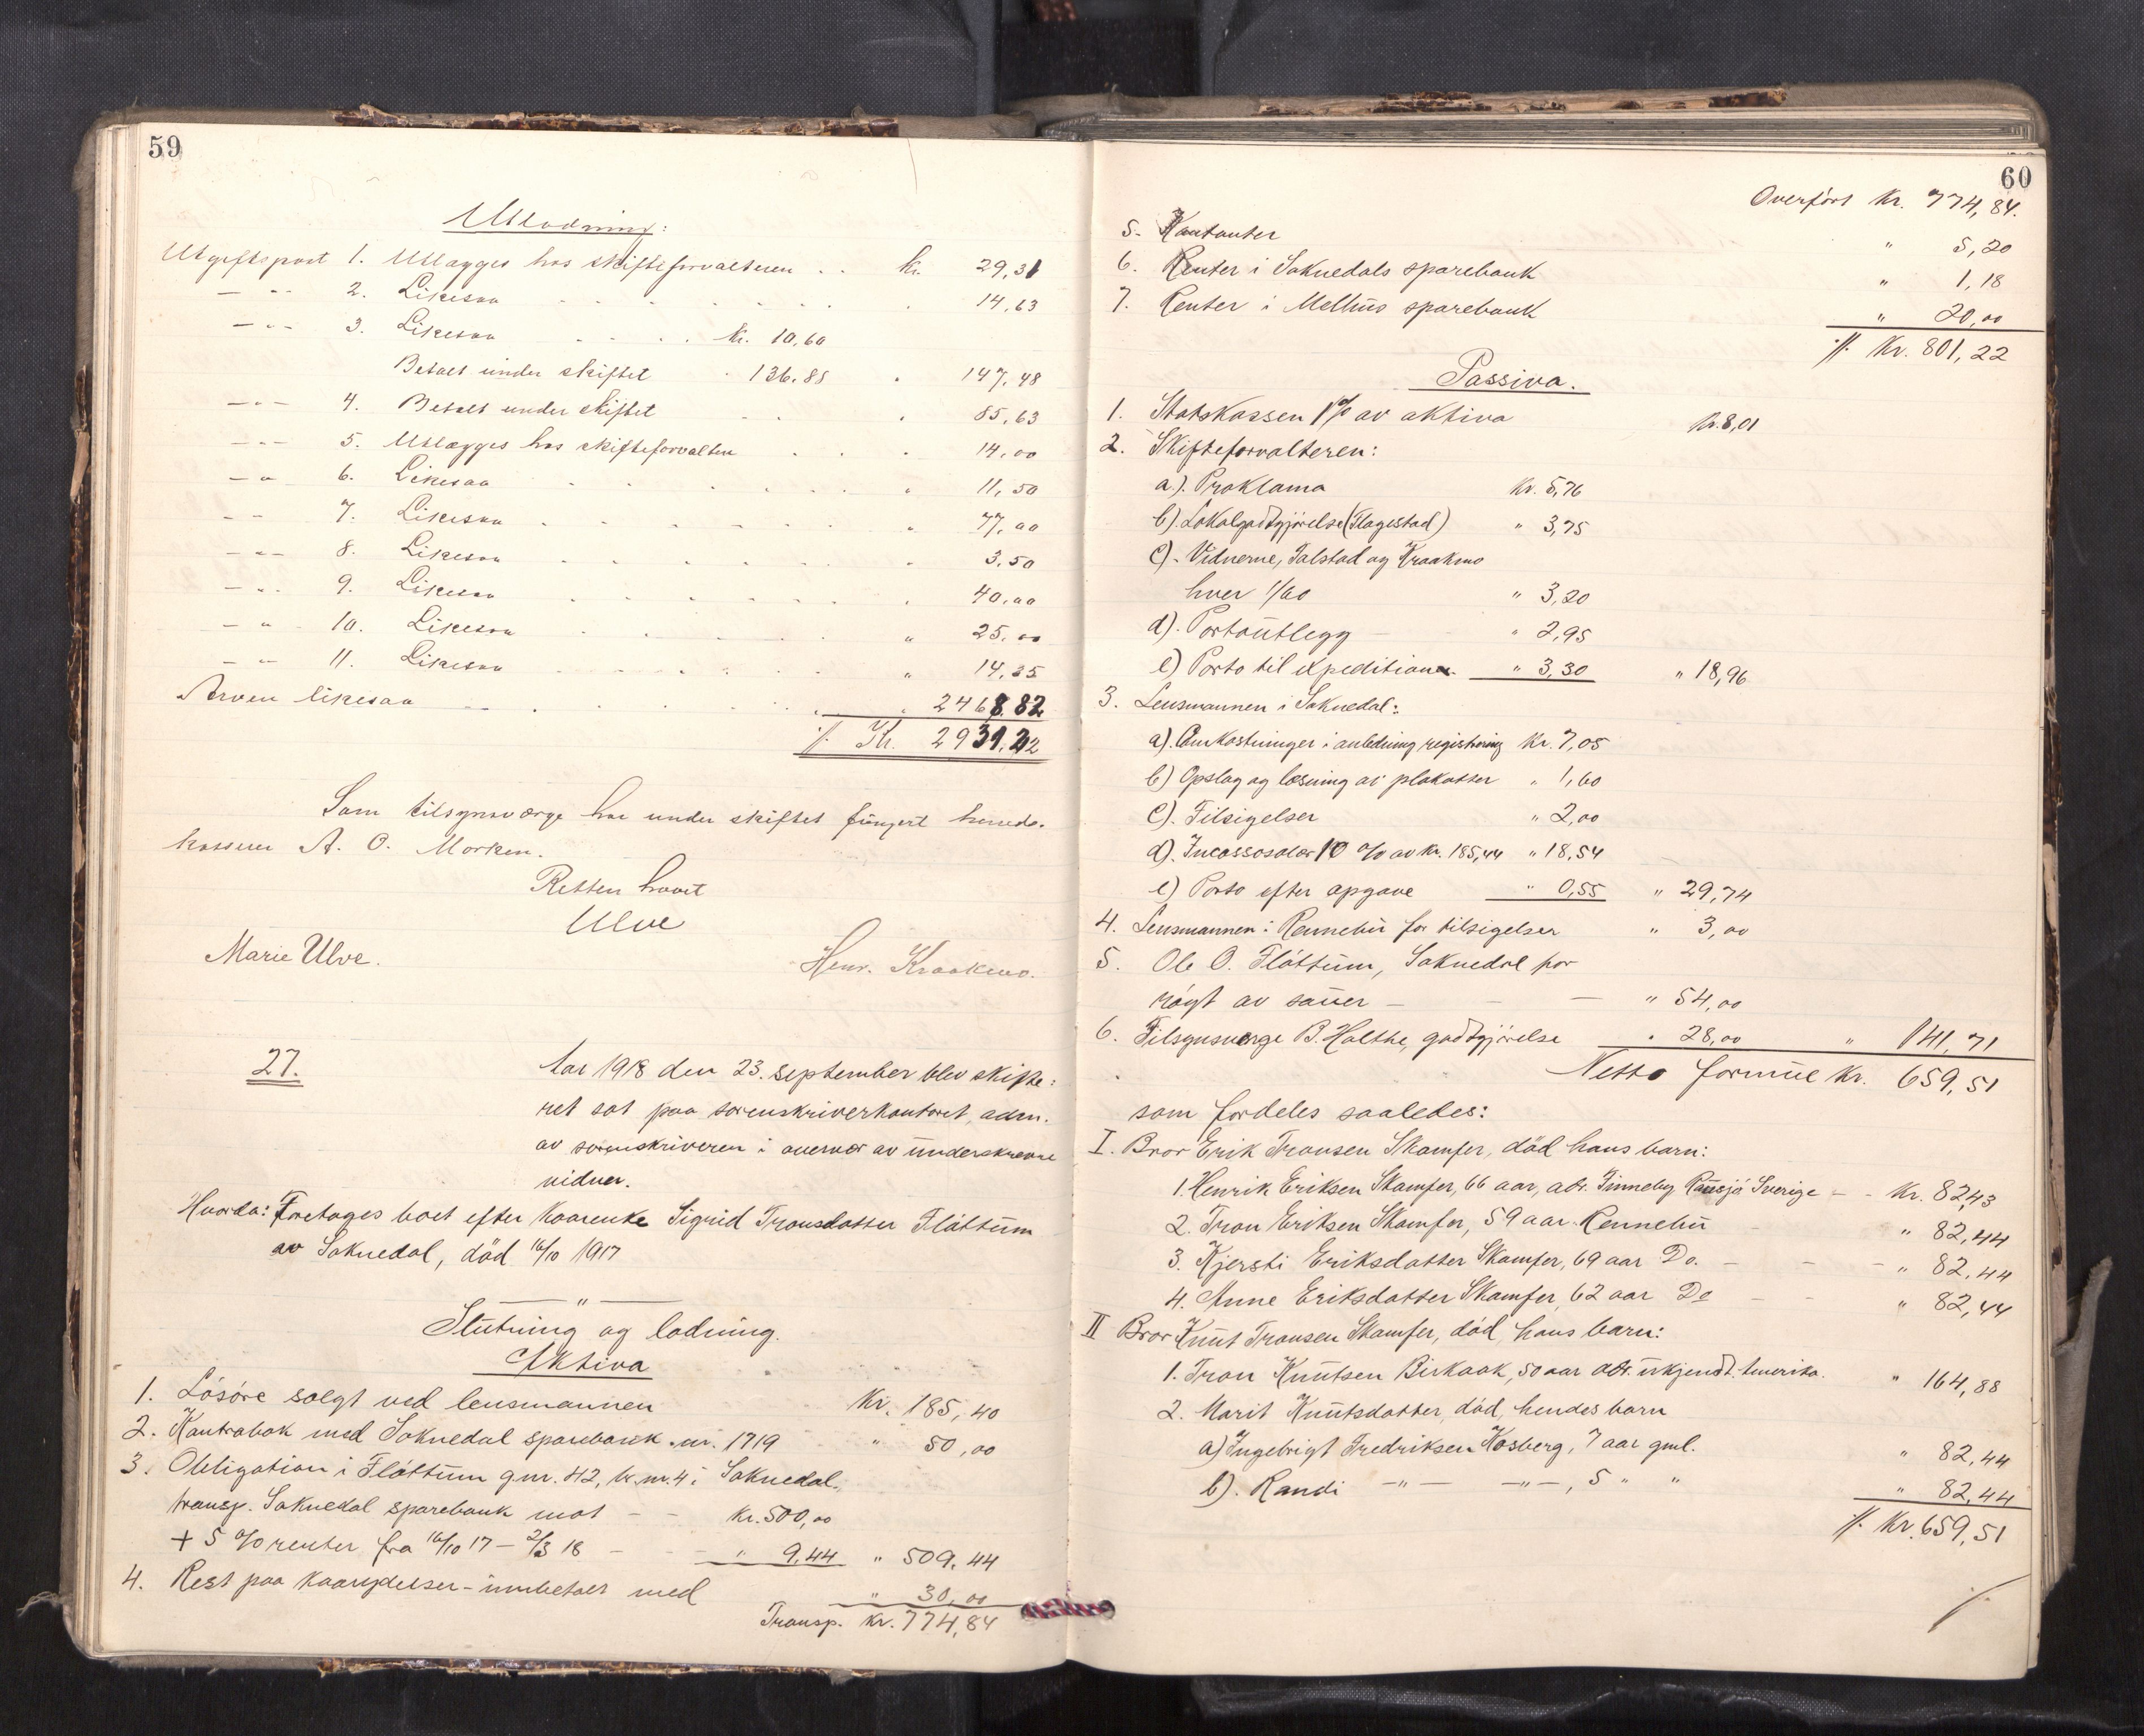 59
Utlodning:
Utgiftspost 1. Utlægges hos skifteforvalteren . . kr. 29,31
— " — 2. Likesaa . . . . . . 14,63
— " — 3. Likesaa . . . . kr. 10.60
Betalt under skiftet " 136.88 " 147,48
— " — 4. Betalt under skiftet . . . 85,63
— " — 5. Utlægges hos skifteforvalten . . . 14,00
— " — 6. Likesaa . . . . . " 11,50
— " — 7. Likesaa . . . . . " 77,00
— " — 8. Likesaa . . . . . " 3,50
— " — 9. Likesaa . . . . . " 40,00
— " — 10. Likesaa . . . . . " 25,00
— " — 11. Likesaa . . . . . " 14,35
Arven likesaa . . . . . " 2468.82
/. Kr. 2931.22
Som tilsynsværge har under skiftet fungert herreds-
kasserer A. O. Morken.
Retten hævet
Ulve
Marie Ulve. Henr. Kraakmo.
27. Aar 1918 den 23. september blev skifte-
ret sat paa sorenskriverkontoret, adm.
av sorenskriveren i overvær av underskrevne
vidner.
Hvorda: Foretages boet efter kaarenke Sigrid Tronsdatter Fløttum
av Soknedal, död 16/10 1917
— " —
Slutning og lodning.
Aktiva
1. Lösöre solgt ved lensmannen Kr. 185,40
2. Kontrabok med Soknedal sparebank nr. 1719 " 50,00
3. Obligation i Flöttum g.nr. 42, br.nr. 4 i Soknedal,
transp. Soknedal sparebank mot — — Kr. 500,00
+ 5 % renter fra 16/10 17 — 2/3 18 — — " 9.44 " 509.44
4. Rest paa kaarydelser - innbetalt med " 30,00
Transp. kr. 774,84
60
Overført Kr. 774,84.
5. Kontanter " 5,20
6. Renter i Soknedals sparebank " 1,18
7. Renter i Melhus sparebank " 20,00
/. Kr. 801,22
Passiva.
1. Statskassen 1% av aktiva Kr. 8,01
2. Skifteforvalteren:
a). Proklama Kr. 5,76
b). Lokalgodtgjörelse (Flagestad) " 3,75
c). Vidnerne, Talstad og Kraakmo
hver 1/60 " 3,20
d). Portoutlegg — " 2,95
e) Porto til expeditioner " 3,30 " 18,96
3. Lensmannen i Soknedal:
a). Omkostninger i anledning registrering Kr. 7,05
b) Opslag og læsning av plakater " 1,60
c). Tilsigelser " 2,00
d). Incassosalær 10 % av Kr. 185,44 " 18,54
e) Porto efter opgave " 0,55 " 29,74
4. Lensmannen i Rennebu for tilsigelser " 3,00
5. Ole O. Flöttum, Soknedal for
rögt av sauer — — — " 54,00
6. Tilsynsverge B. Halthe, godtgjörelse " 28,00 " 141,71
Netto formue Kr. 659,51
som fordeles saaledes:
I. Bror Erik Tronsen Skamfer, död hans barn:
1. Henrik Eriksen Skamfer, 66 aar, adr. Finneby Ramsjö Sverige — - Kr. 82,43
2. Tron Eriksen Skamfer, 59 aar. Rennebu — " 82,44
3. Kjersti Eriksdatter Skamfer, 69 aar Do. — — — " 82,44
4. Anne Eriksdatter Skamfer, 62 aar Do — — " 82,44
II Bror Knut Tronsen Skamfer, död, hans barn:
1. Tron Knutsen Birkaak, 50 aar adr. ukjendt. Amerika. " 164,88
2. Marit Knutsdatter, död, hendes barn
a) Ingebrigt Fredriksen Kosberg, 7 aar gml. " 82,44
b). Randi — " — — " — , 5 " " " 82,44
/. Kr. 659,51